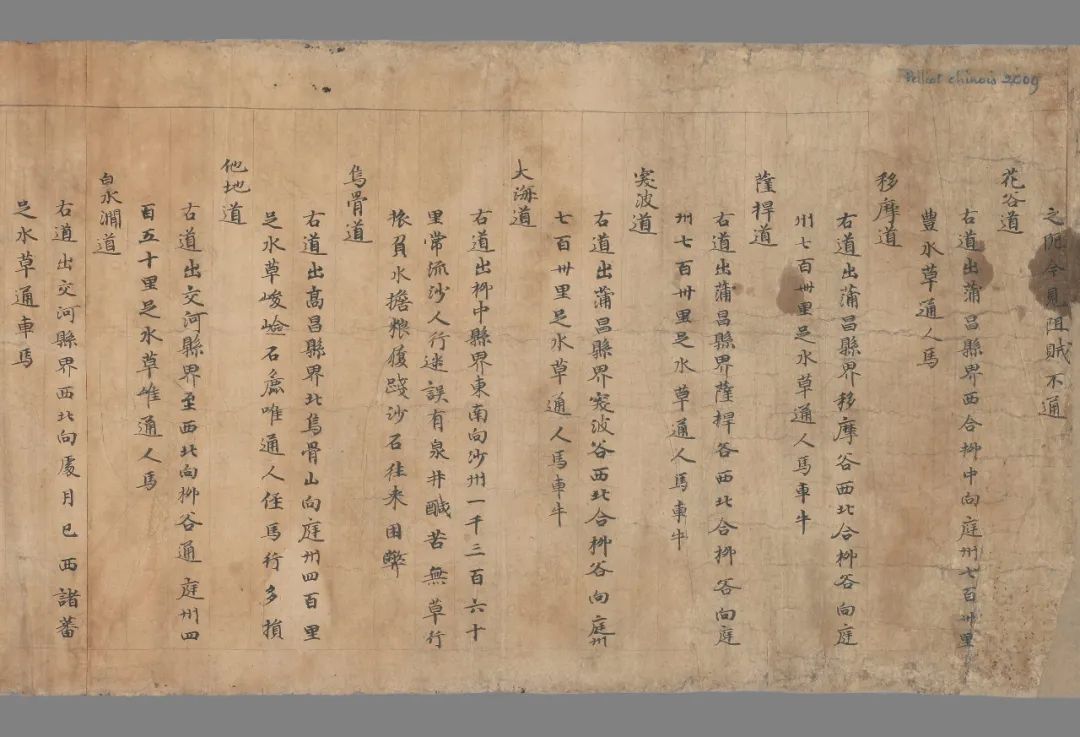 Pelliot chinois 2009
之阨今見阻賊不通
花谷道
右道出蒲昌縣界西合柳中向庭州七百卅里
豐水草通人馬
移摩道
右道出蒲昌縣界移摩谷西北合柳谷向庭
州七百卅里足水草通人馬車牛
薩捍道
右道出蒲昌縣界薩捍谷西北合柳谷向庭
州七百卅里足水草通人馬車牛
突波道
右道出蒲昌縣界突波谷西北合柳谷向庭州
七百卅里足水草通人馬車牛
大海道
右道出柳中縣界東南向沙州一千三百六十
里常流沙人行迷誤有泉井鹹苦無草行
旅負水擔粮履踐沙石往來困弊
烏骨道
右道出高昌縣界北烏骨山向庭州四百里
足水草峻嶮石麁唯通人徑馬行多損
他地道
右道出交河縣界至西北向柳谷通庭州四
百五十里足水草唯通人馬
白水澗道
右道出交河縣界西北向處月已西諸蕃
足水草通車馬